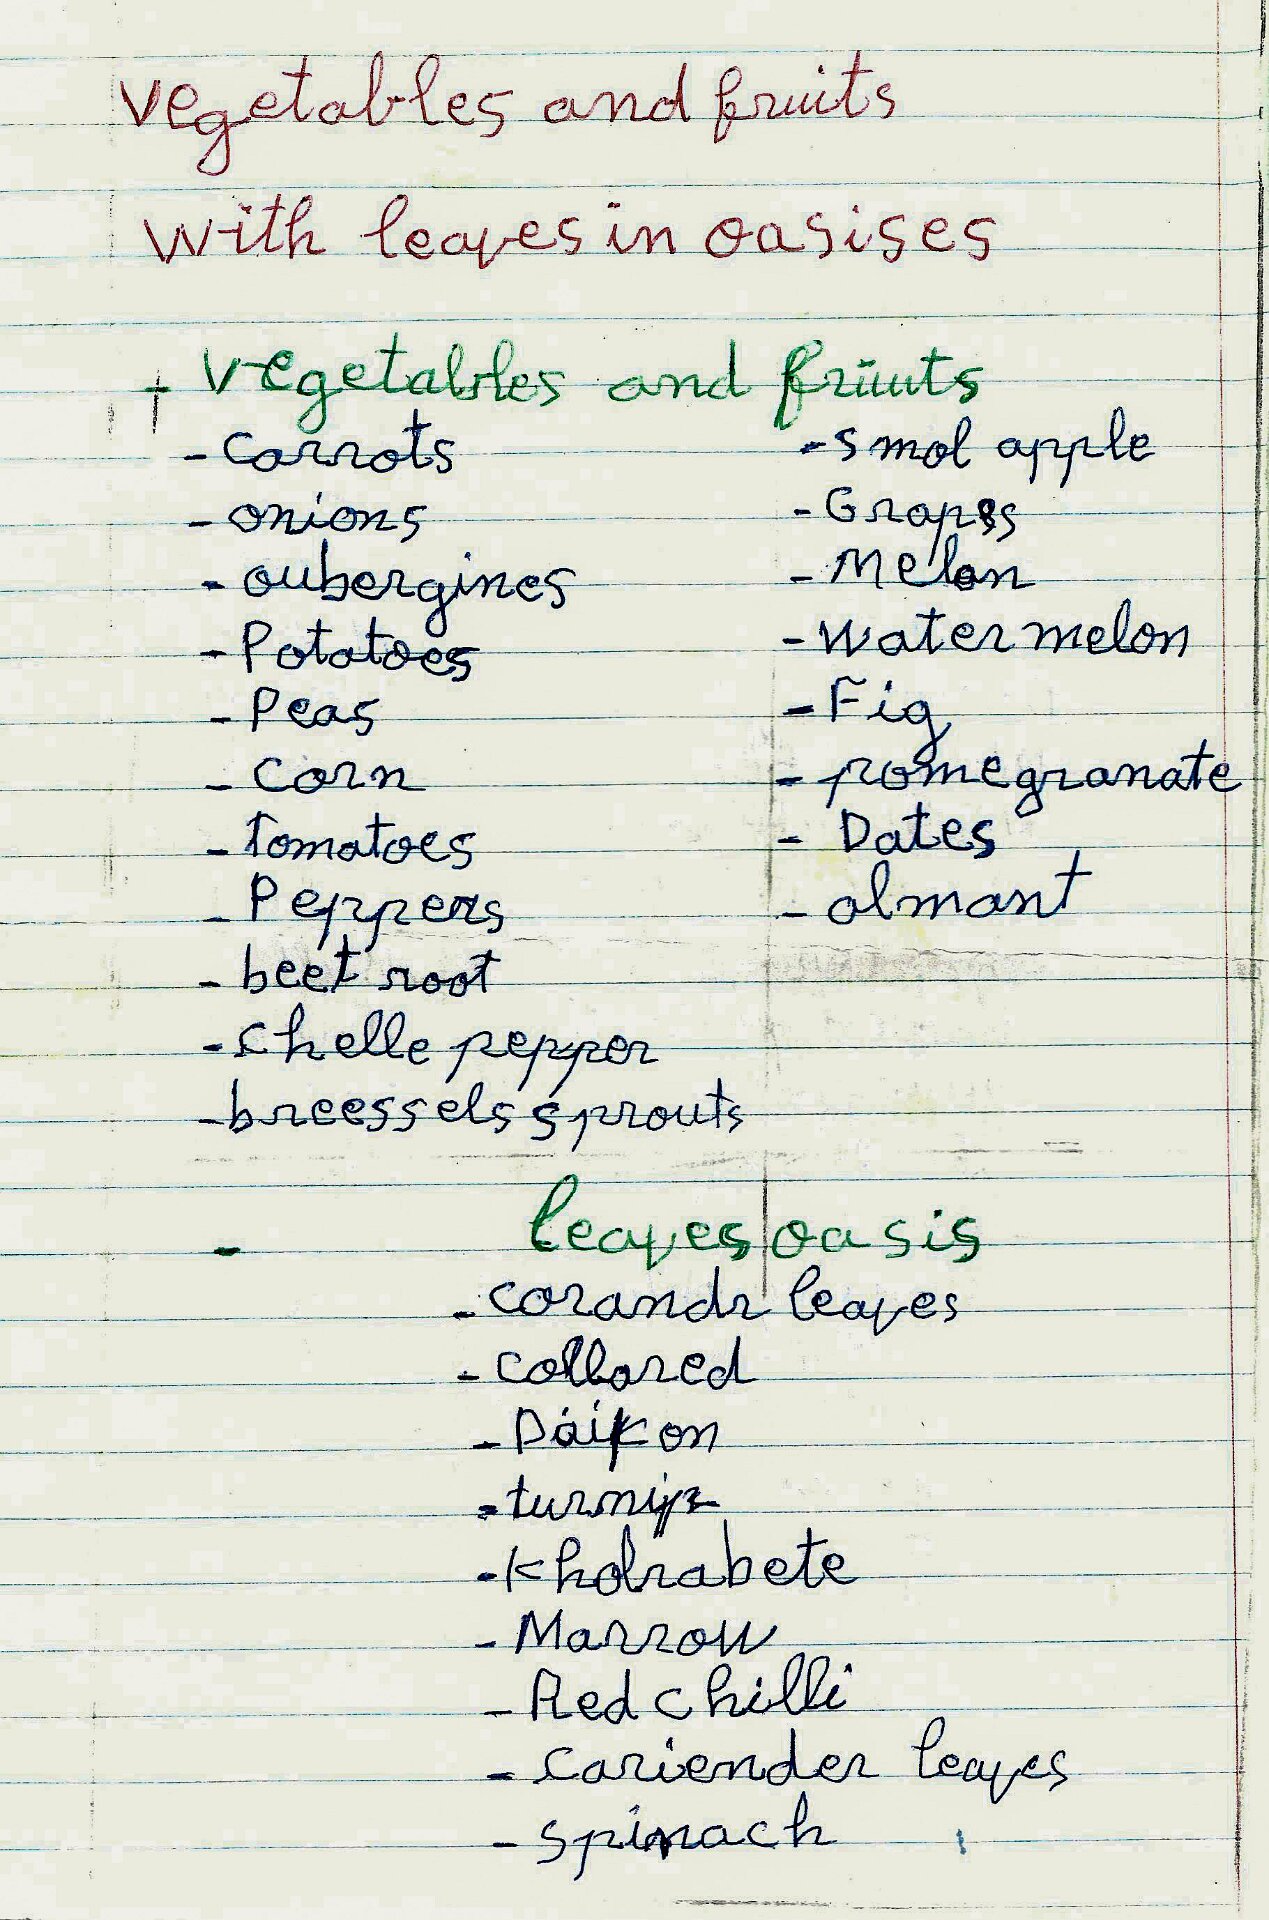 vegetables and fruits
with leaves in oasises
+ vegetables and fruits
- carrots
- onions
- oubergines
- Potatoes
- Peas
- corn
- tomatoes
- Peppers
- beet root
- chelle pepper
- breessels sprouts
- smol apple
- Grapes
- Melon
- water melon
- Fig
- pomegranate
- Dates
- olmant
- leaves oasis
- corandr leaves
- collared
- Daikon
- turnip
- Kholrabete
- Marrow
- Red chilli
- cariender leaves
- spinach